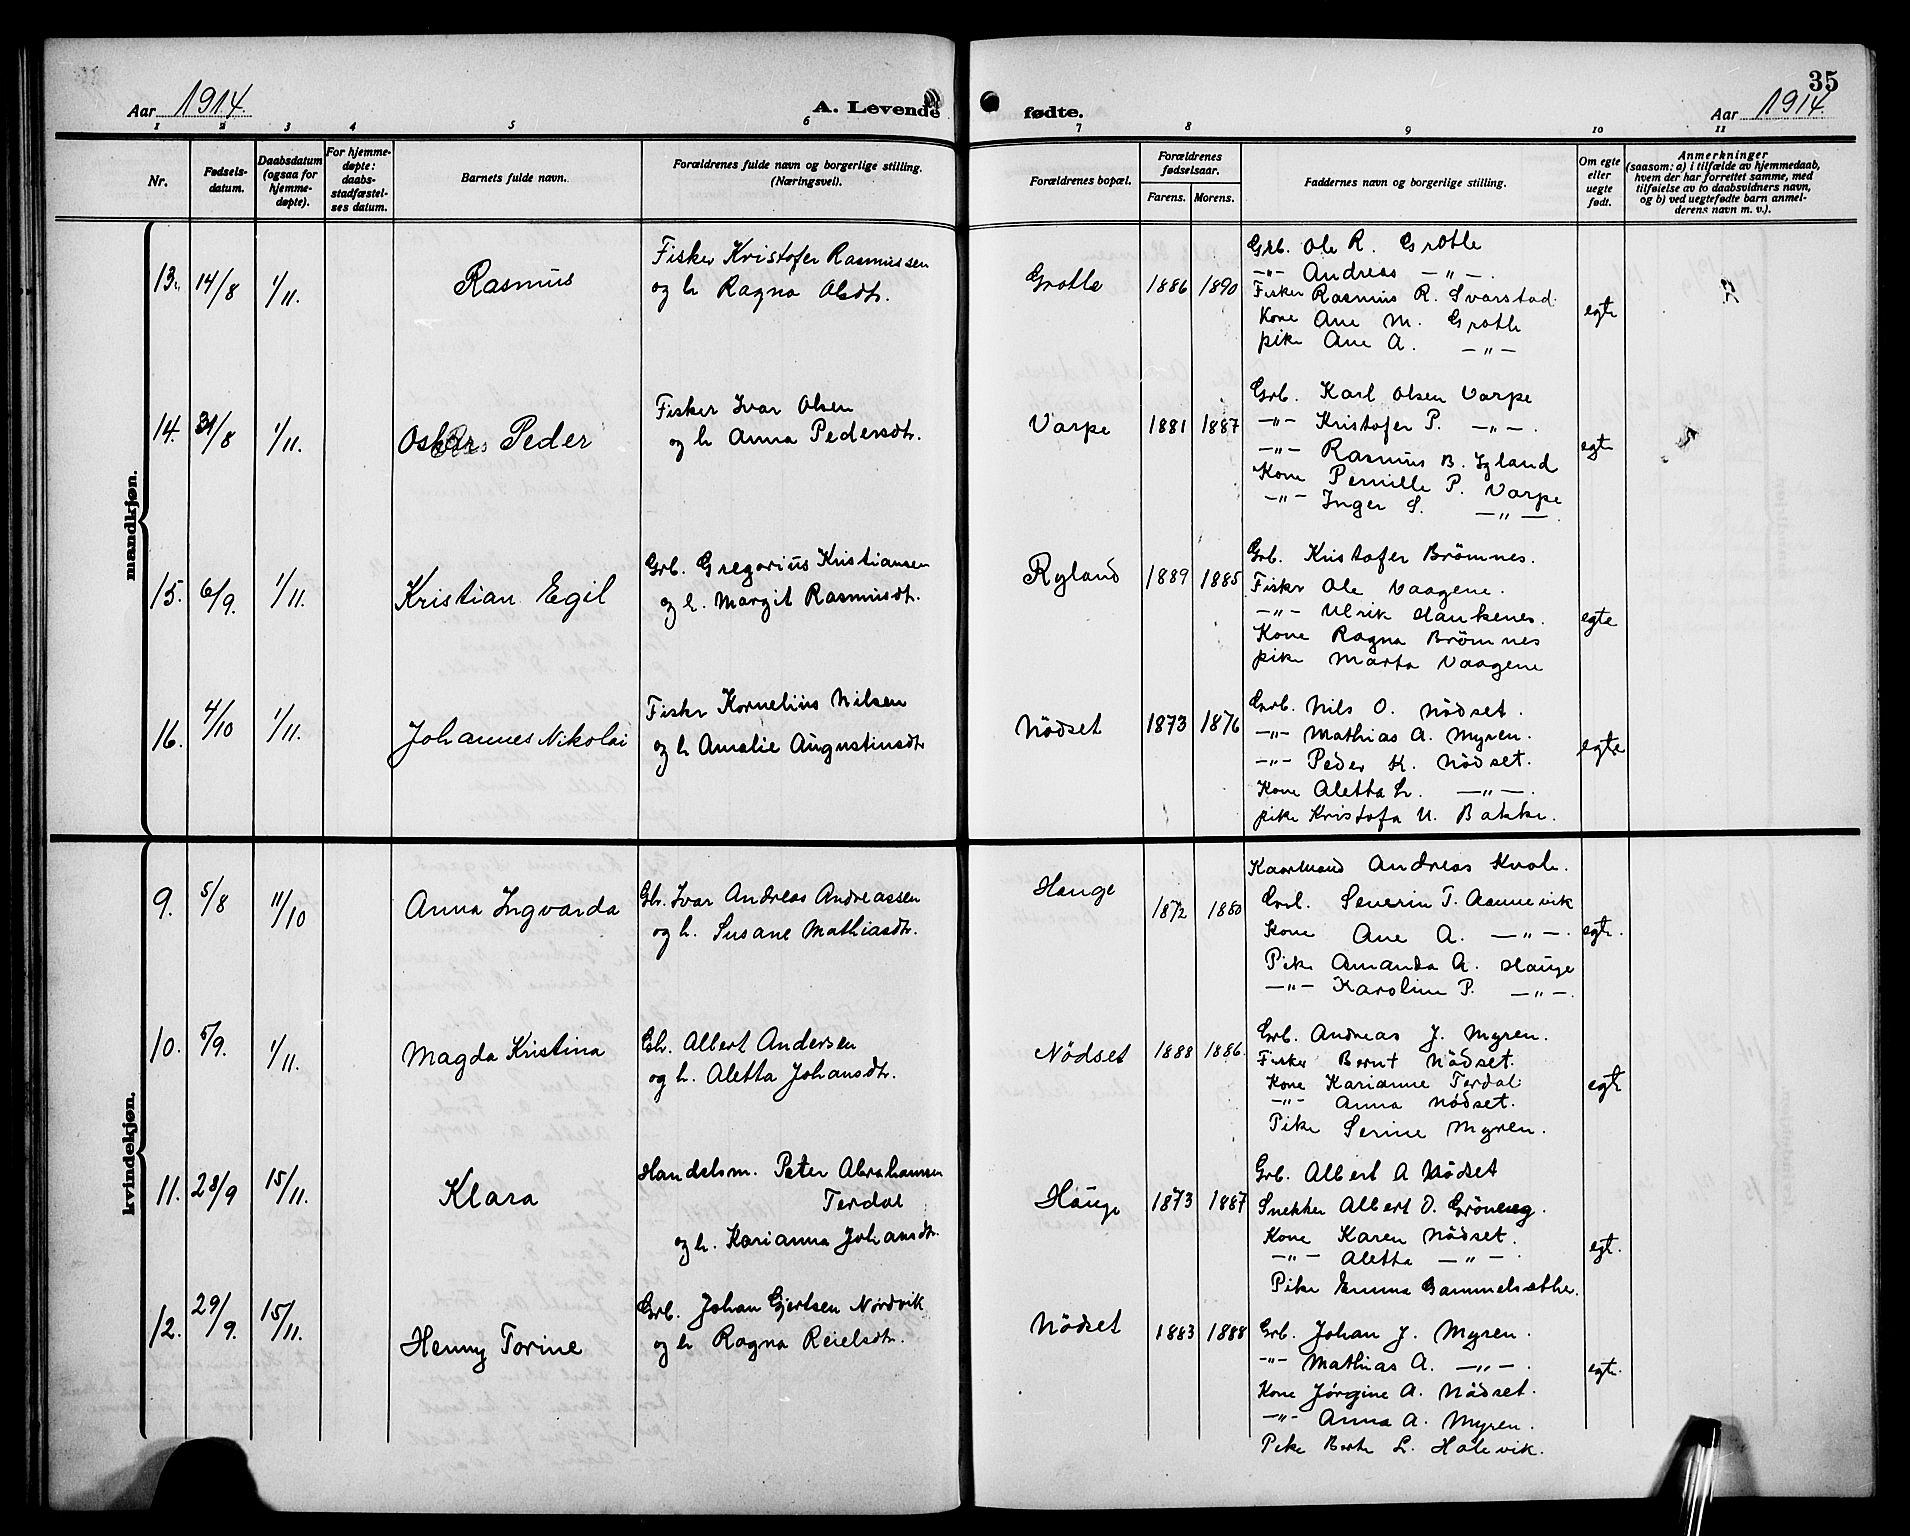 35
Aar 1914.
A. Levende fødte.
Aar 1914.
1 2 3 4 5 6 7 8 9 10 11
Nr.
Fødsels-
datum.
Daabsdatum
(ogsaa for
hjemme-
døpte).
For hjemme-
døpte:
daabs-
stadfæstel-
ses datum.
Barnets fulde navn.
Forældrenes fulde navn og borgerlige stilling.
(Næringsvei).
Forældrenes bopæl.
Forældrenes
fødselsaar.
Farens. Morens.
Faddernes navn og borgerlige stilling.
Om egte
eller
uegte
født.
Anmerkninger
(saasom: a) i tilfælde av hjemmedaab,
hvem der har forrettet samme, med
tilføielse av to daabsvidners navn,
og b) ved uegtefødte barn anmel-
derens navn m. v.).
mandkjøn.
13. 14/8 1/11. Rasmus
Fisker Kristofer Rasmussen
og h Ragna Olsdtr.
Grotle 1886 1890
Grb. Ole R. Grotle
-"- Andreas -"-.
Fisker Rasmus R. Svarstad.
Kone Ane M. Grotle
pike Ane A. -"-
egte
14. 31/8 1/11. Oskar Peder
Fisker Ivar Olsen
og h Anna Pedersdtr.
Varpe 1881 1887
Grb. Karl Olsen Varpe
-"- Kristofer P. -"-.
-"- Rasmus B. Igland
Kone Pernille P. Varpe
-"- Inger S. -"-.
egte
15. 6/9. 1/11. Kristian Egil
Grb. Gregorius Kristiansen
og h. Margit Rasmusdtr.
Ryland 1889 1885
Grb. Kristofer Brömnes.
Fisker Ole Vaagene.
-"- Ulrik Haukenes.
Kone Ragna Brömnes
pike Marta Vaagene
egte
16. 4/10 1/11. Johannes Nikolai
Fisker Kornelius Nilsen
og h Amalie Augustinsdtr
Nödset 1873 1876
Grb. Nils O. Nödset.
-"- Mathias A. Myren.
-"- Peder K. Nödset.
Kone Aletta L. -"-.
pike Kristofa U. Bakke.
egte
kvindekjøn.
9. 5/8 11/10 Anna Ingvarda
Gb. Ivar Andreas Andreassen
og h. Susane Mathiasdtr.
Hauge 1872 1880
Kaarmand Andreas Kvale.
Grb. Severin T. Aannevik
Kone Ane A. -"-.
Pike Amanda A. Hauge
-"- Karoline P. -"-.
egte.
10. 5/9. 1/11. Magda Kristina
Gb. Albert Andersen
og h. Aletta Johansdtr.
Nödset 1888 1886.
Grb. Andreas J. Myren.
Fisker Bernt Nödset.
Kone Karianne Terdal
-"- Anna Nödset.
Pike Serine Myren.
egte
11. 28/9 15/11. Klara
Handelsm. Peter Abrahamsen
Terdal
og h. Karianna Johansdtr.
Hauge 1873 1887
Grb. Albert A Nödset
Snekker Albert O. Gröneng.
Kone Karen Nödset.
-"- Aletta -"-.
Pike Emma Gammelsæther.
egt.
12. 29/9. 15/11. Henny Torine
Grb. Johan Gjertsen Nordvik
og h Ragna Reielsdtr.
Nödset 1883 1888
Grb. Johan J. Myren.
-"- Mathias A. -"-.
Kone Jörgine A. Nödset.
-"- Anna A. Myren.
Pike Berte L. Holevik.
egte.